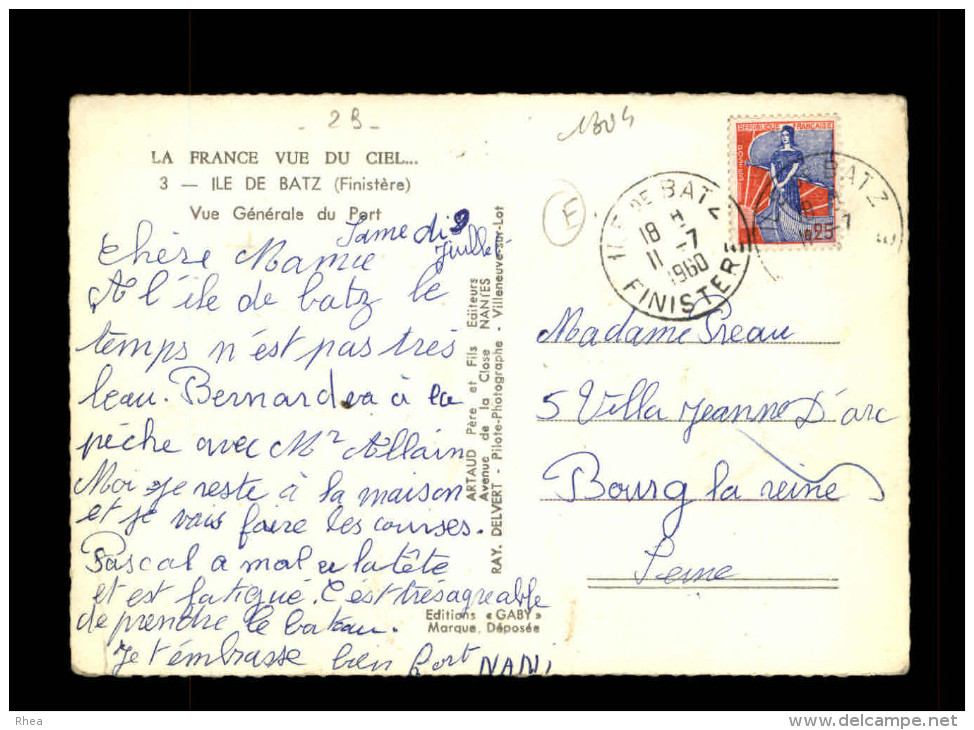 - 29 -
1304
E
LA FRANCE VUE DU CIEL...
3 — ILE DE BATZ (Finistère)
Vue Générale du Port
Samedi 9
Juillet
Chère Mamie
A l'île de batz le
temps n'est pas très
beau. Bernard va à la
pêche avec Mr Allain
Moi je reste à la maison
et je vais faire les courses.
Pascal a mal a la tête
et est fatigué. C'est très agreable
de prendre le bateau.
Je t'embrasse bien fort NANI
ARTAUD Père et Fils Editeurs
Avenue de la Close NANTES
RAY. DELVERT - Pilote-Photographe - Villeneuve-sur-Lot
Editions « GABY »
Marque Déposée
REPUBLIQUE FRANÇAISE
POSTES
0,25
ILE DE BATZ
18 H
11 -7
1960
FINISTERE
BATZ
Madame Preau
5 Villa Jeanne D'arc
Bourg la reine
Seine
Rhea
www.delcampe.net